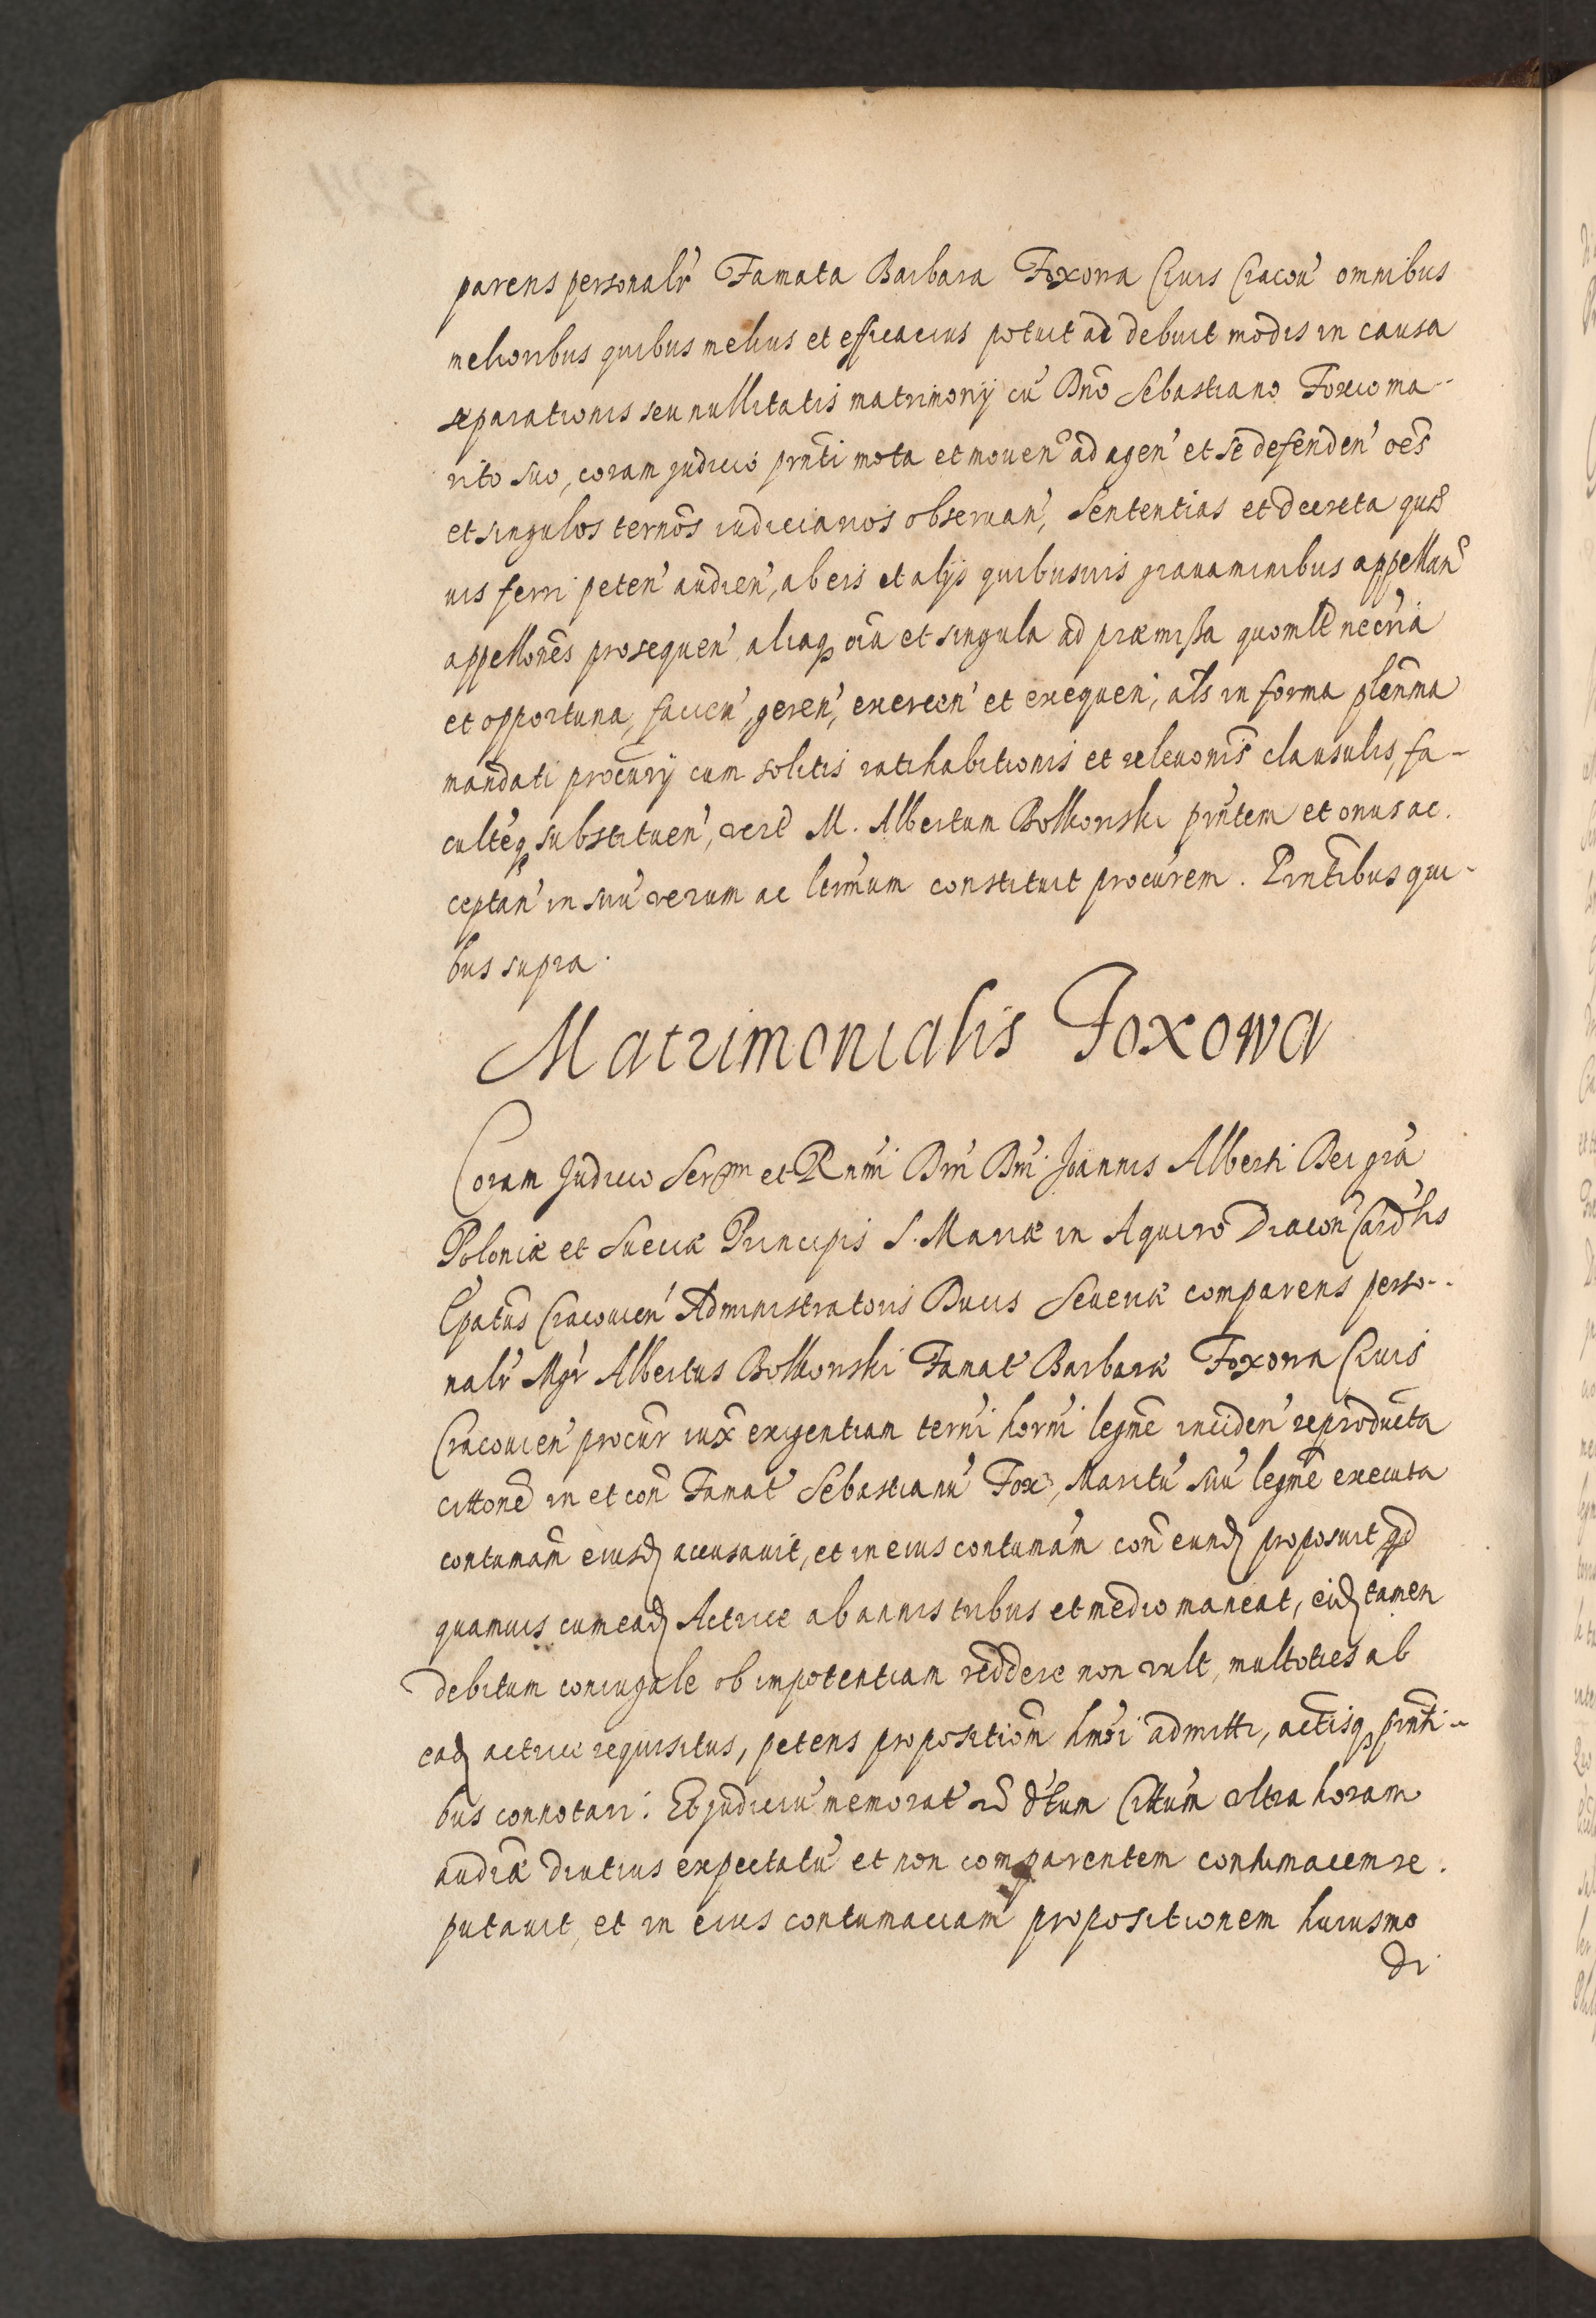 parens personalr̃ Famata Barbara Foxowa Ciuis Cracou' omnibus
melioribus quibus melius et efficacius potuit ac debuit modis in causa
separationis seu nullitatis matrimonij cu' Dno Sebastiano Foxio ma-
rito suo, coram judicio prnti mota et mouen' ad agen' et se defenden' oes
et singulos termos iudiciarios obseruan', sententias et decreta quae
uis ferri peten' audien', ab eis et alijs quibusuis grauaminibus appellan'
appellones prosequen' aliaqꝫ oia et singula ad præmissa quomlt necria
et opportuna, facien', geren', exercen' et exequen', als in forma plenma
mandati procurij cum solitis ratihabitionis et releuonis clausulis, fa-
culteqꝫ substituen', M. Albertum Bolkowski prntem et onus ac.
ceptan' in suu' verum ac ltimum constituit procurem. Prntibus qui-
bus supra.
Matrimonialis Foxowa
Coram Judicio Sermi et Rnmi Dni Dni Joannis Alberti Dei gra
Poloniæ et Sueciæ Principis S. Mariæ in Aquiro Diacon' Cardlis
Epatus Cracouien' Administratoris Ducis Seueriæ comparens perso--
nalr Mgr Albertus Bolkowski Famat' Barbaræ Foxowa Ciuis
Cracouien' procur iux exigentiam termi horni legme inciden' reproducta
cittone in et con Famat' Sebastianu' Fox, Maritu' suu' legme executa
contumam eiusdꝫ accusauit, et in eius contumam con eundꝫ proposuit qd
quamuis cum eadꝫ Actrice ab annis tribus et medio maneat, eidꝫ tamen
debitum coniugale ob impotentiam reddere non vult, multoties ab
eadꝫ actrice requisitus, petens propositiom hmoi admitti, actisqꝫ prnti-
bus connotari. Et judiciu' memorat' dtum Cittum vltra horam
audiæ diutius expectatu' et non comparentem contumacem re.
putauit, et in eius contumaciam propositionem huiusmo
di